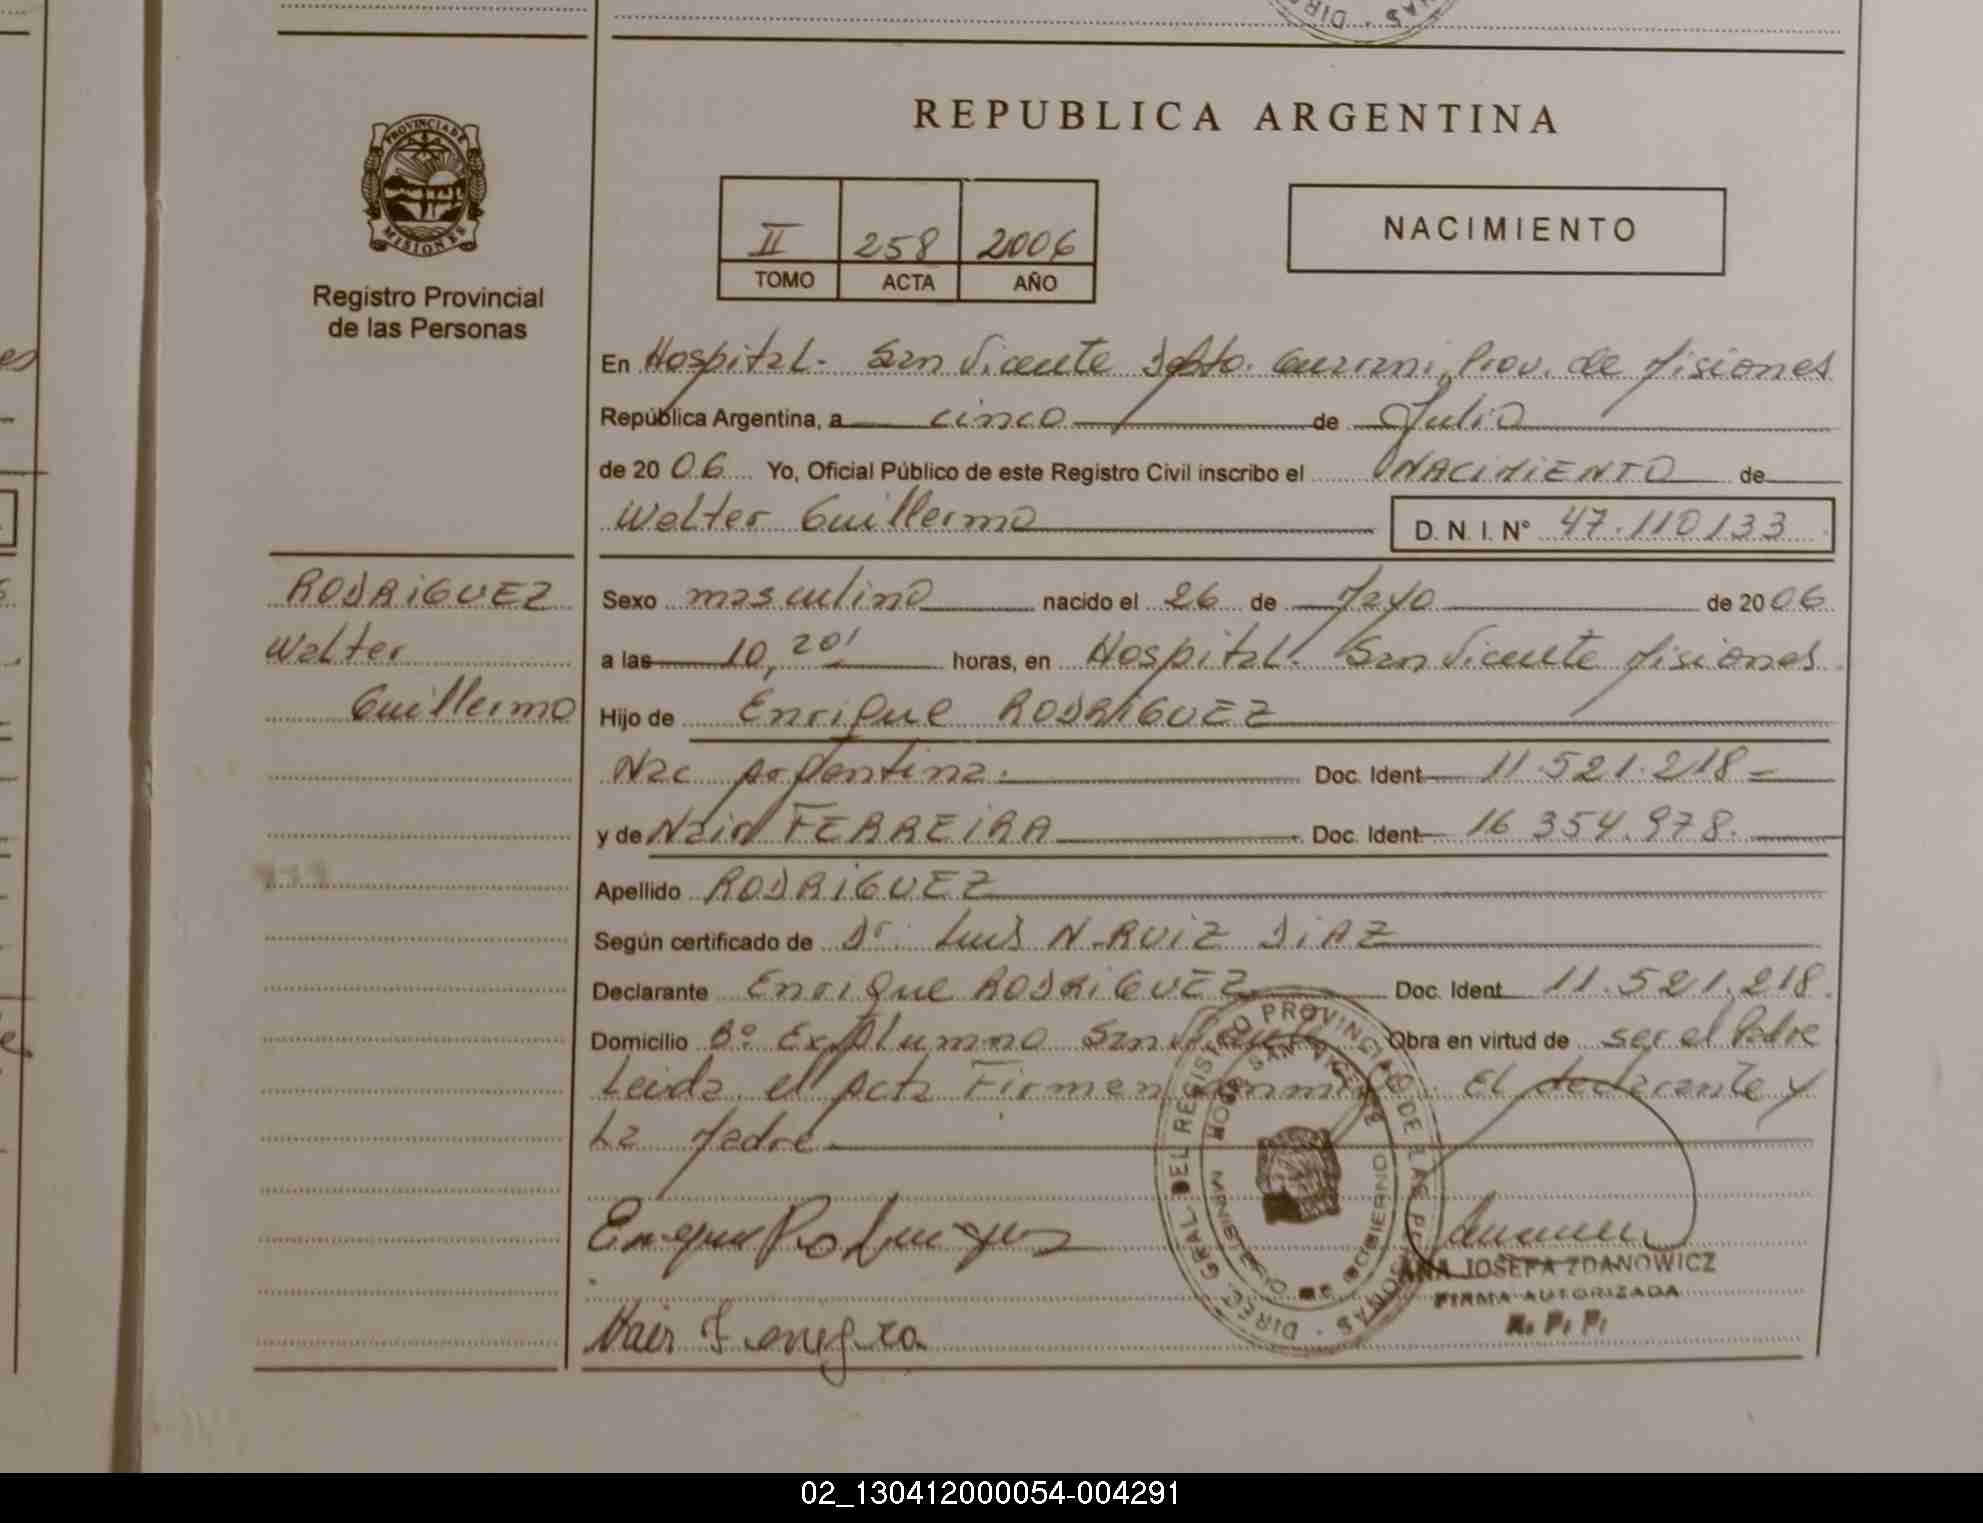 REPUBLICA ARGENTINA
PROVINCIA DE MISIONES
Registro Provincial
de las Personas
II 258 2006
TOMO ACTA AÑO
NACIMIENTO
En Hospital - San Vicente Dpto. Guarani, Prov. de Misiones
República Argentina, a cinco de Julio
de 2006 Yo, Oficial Público de este Registro Civil inscribo el NACIMIENTO de
Walter Guillermo D. N. I. N° 47.110133
RODRIGUEZ
Walter
Guillermo
Sexo masculino nacido el 26 de Mayo de 2006
a las 10,20' horas, en Hospital. San Vicente Misiones
Hijo de Enrique RODRIGUEZ
Nac Argentina. Doc. Ident 11.521.218 -
y de Nair FERREIRA Doc. Ident 16 354.978.
Apellido RODRIGUEZ
Según certificado de Dr. Luis N. RUIZ DIAZ
Declarante Enrique RODRIGUEZ Doc. Ident 11.521.218.
Domicilio B° Ex Alumno San Vicente Obra en virtud de ser el Padre
Leida el Acta Firman conmigo: El declarante y
La Madre
DIREC. GRAL. DEL REGISTRO PROVINCIAL DE LAS PERSONAS
HOSP. SAN VICENTE
MINISTERIO DE GOBIERNO
ANA JOSEFA ZDANOWICZ
FIRMA AUTORIZADA
R. P. P.
02_130412000054-004291